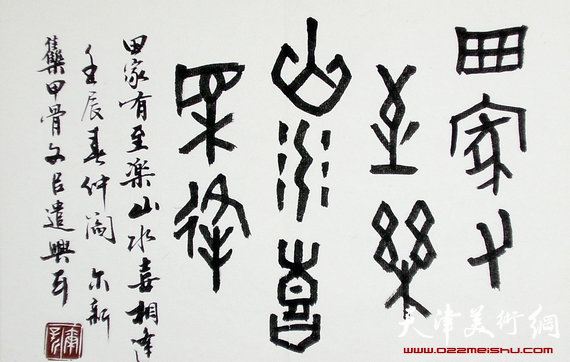 田家有
至樂
山水喜
相逢
田家有至樂山水喜相逢
壬辰春仲閻尔新
集甲骨文以遣興耳
天津美術網
www.022meishu.com